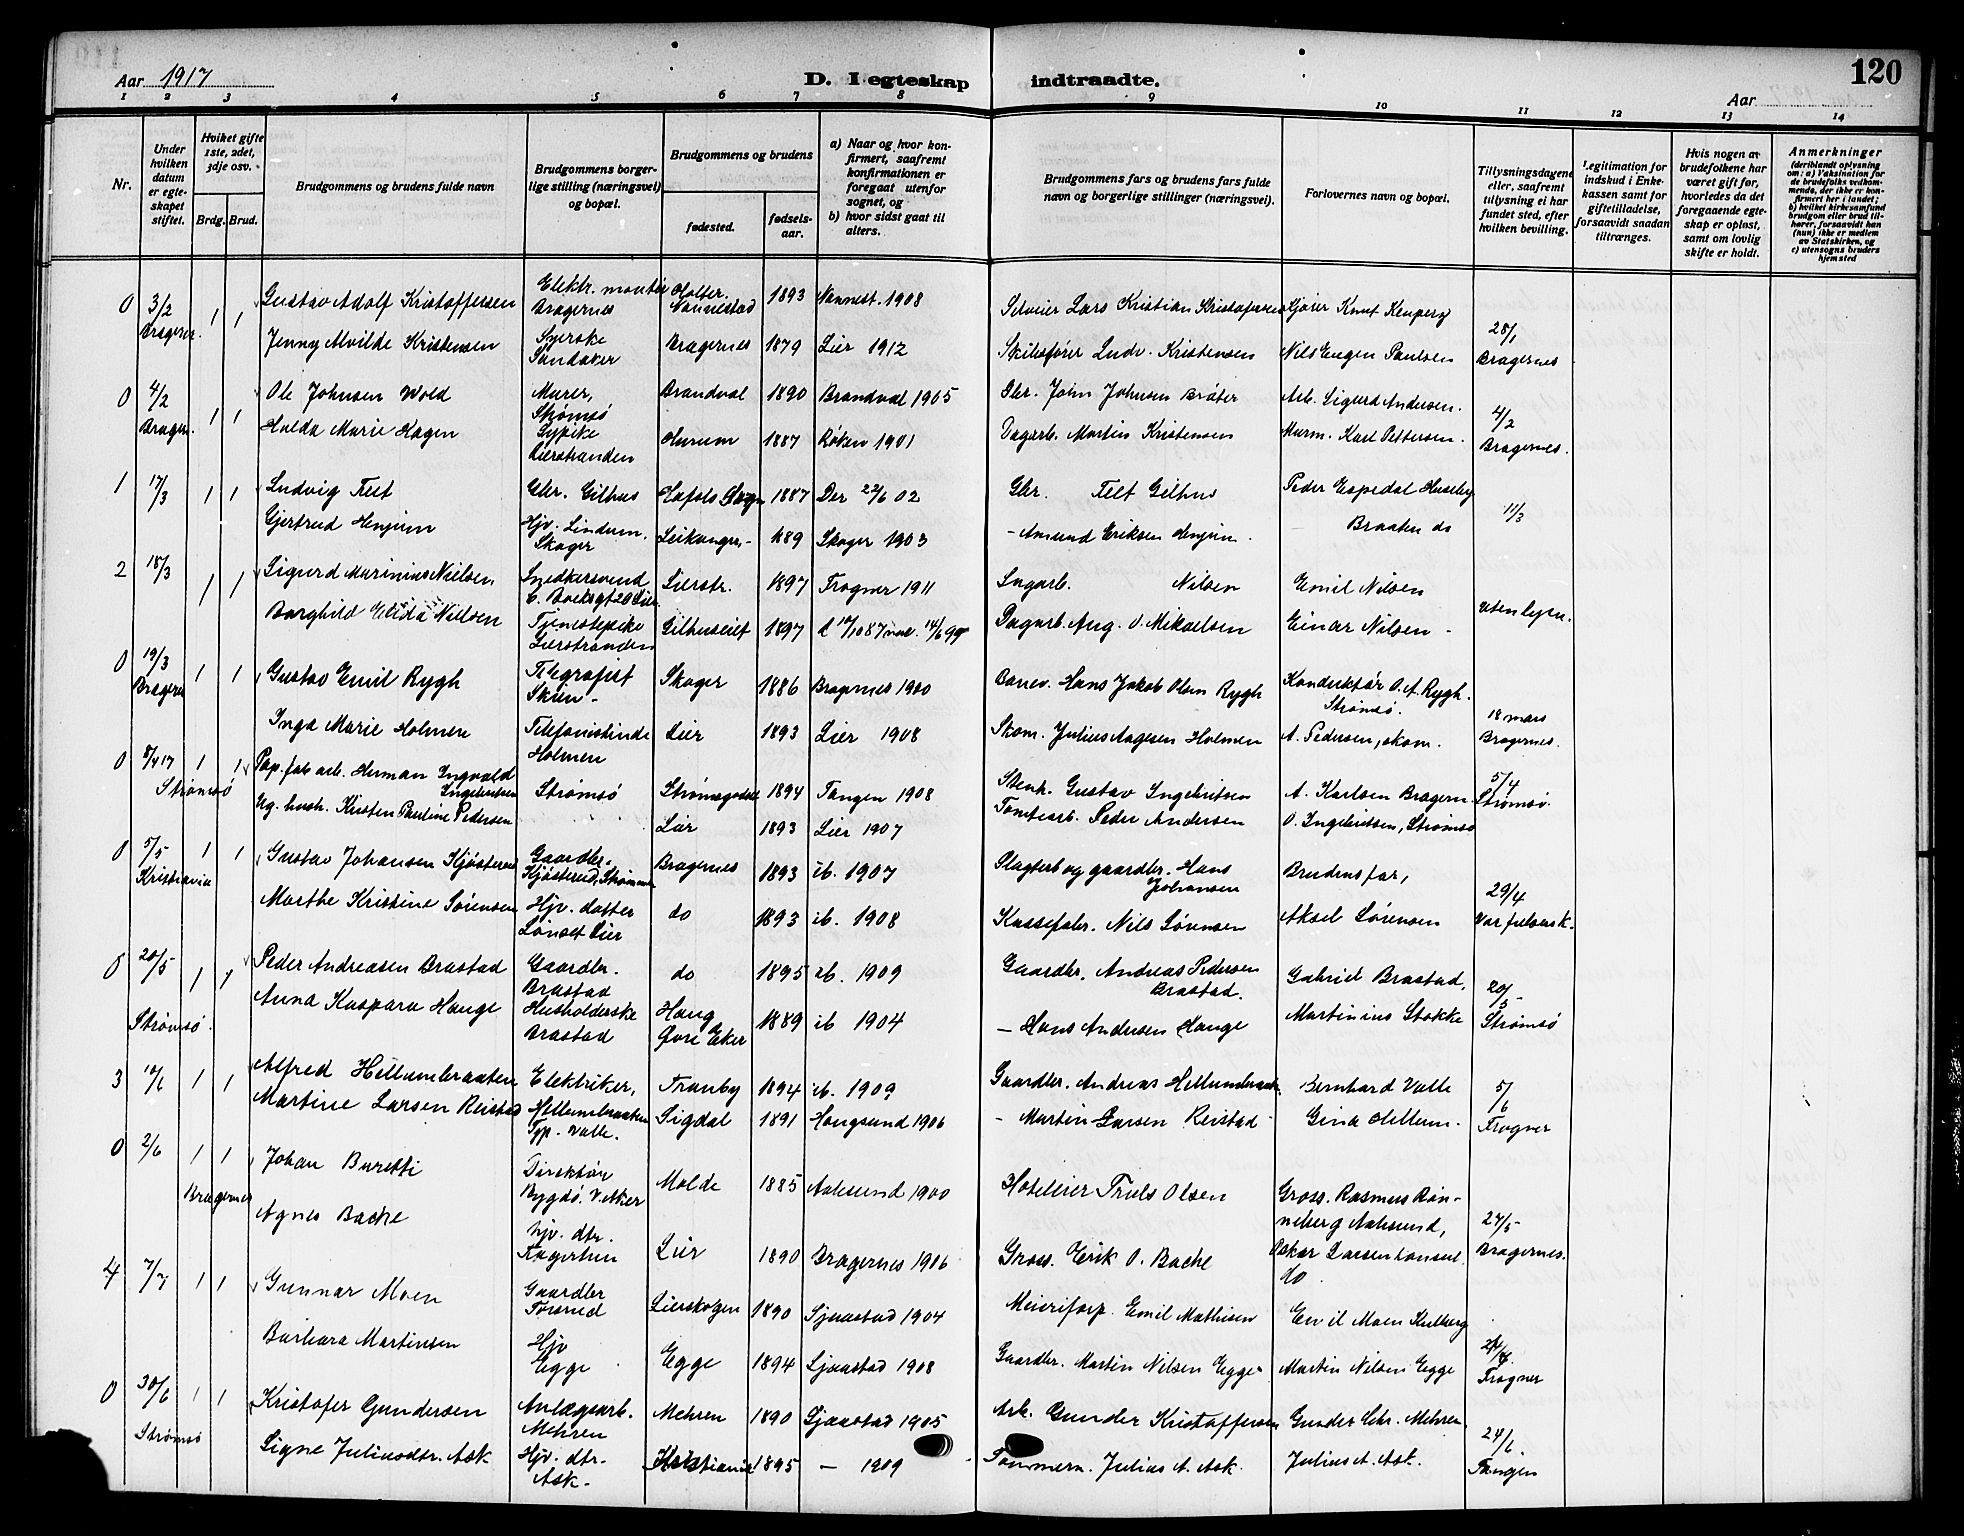 Aar 1917
D. I egteskap indtraadte.
120
Aar
1 2 3 4 5 6 7 8 9 10 11 12 13 14
Nr.
Under hvilken datum er egteskapet stiftet.
Hvilket gifte 1ste, 2det, 3dje osv.
Brdg. Brud.
Brudgommens og brudens fulde navn
Brudgommens borgerlige stilling (næringsvei) og bopæl.
Brudgommens og brudens
fødested.
fødselsaar.
a) Naar og hvor konfirmert, saafremt konfirmationen er foregaat utenfor sognet, og
b) hvor sidst gaat til alters.
Brudgommens fars og brudens fars fulde navn og borgerlige stillinger (næringsvei).
Forlovernes navn og bopæl.
Tillysningsdagene eller, saafremt tillysning ei har fundet sted, efter hvilken bevilling.
Legitimation for indskud i Enkekassen samt for giftetilladelse, forsaavidt saadan tiltrænges.
Hvis nogen av brudefolkene har været gift før, hvorledes da det foregaaende egteskap er opløst, samt om lovlig skifte er holdt.
Anmerkninger
(deriblandt oplysning om: a) Vaksination for de brudefolks vedkommende, der ikke er konfirmert her i landet; b) hvilket kirkesamfund brudgom eller brud tilhører, forsaavidt han (hun) ikke er medlem av Statskirken, og c) utensogns bruders hjemsted
0 3/2 Bragernes. 1 1 Gustav Adolf Kristoffersen Elektr. montør Bragernes Holter. Nannestad 1893 Nannest. 1908 Lars Kristian Kristofersen Kjører Knut
Jenny Alvilde Kristensen Syerske Landaker Bragernes 1879 Lier 1912 Skibsfører Ludv. Kristensen Nils Eugen Paulsen 28/1 Bragernes
0 4/2 Bragern. 1 1 Ole Johnsen Wold Murer, Strømsø Brandval 1890 Brandval 1905 Gbr. John Johnsen Bråter Arb. Sigurd Andersen.
Hulda Marie Hagen Sypike Lierstranden Hurum 1887 Røken 1901 Dagarb. Martin Kristensen Murm. Karl Pettersen. 4/2 Bragernes.
1 17/3 1 1 Ludvig Tveit Gbr. Gilhus 1887 Der 22/6 02 Gbr. Tveit Gilhus Peder Espedal Huseby
Gjertrud Henjum Hjv. Lindum, Skoger Leikanger - 1889 Skoger 1903 - Amund Eriksen Henjum. Braaten do 11/3
2 18/3 1 1 Sigurd Marinius Nielsen Snedkersvend Lierstr. 1897 Frogner 1911 Nilsen Emil Nilsen
Borghild Elida Nielsen Tjenestepike Lierstranden Gilhuseiet 1897 Dagarb. Aug. O. Mikaelsen Einar Nilsen - uten lysn.
0 19/3 Bragernes 1 1 Gustav Emil Rygh Telegrafist Skien - Skoger 1886 Bragernes 1900 Banev. Hans Jakob Olsen Rygh Konduktør O. A. Rygh. Strømsø.
Inga Marie Holmen Telefonistinde Holmen Lier 1893 Lier 1908 Skom. Julius Aagesen Holmen A. Pedersen, skom. 18 mars Bragernes.
0 8/4 17 Strømsø 1 1 Pap. fab. arb. Herman Ingvald Ingebritsen Strømsø Strømsgodset 1894 Tangen 1908 Stenh. Gustav Ingebritsen A. Karlsen Bragern. 5/4 Strømsø.
Ug. hush. Kristen Pauline Pedersen Lier 1893 Lier 1907 Tomtearb. Peder Andersen O. Ingebritsen, Strømsø
0 5/5 Kristiania 1 1 Gustav Johansen Kjøsterud Gaardbr. Kjøsterud, Strømmen Bragernes 1893 ib. 1907 Slagter og gaardbr. Hans Johansen Brudens far,
Marthe Kristine Sørensen Hjv. datter Lier do 1893 ib. 1908 Kassefabr. Nils Sørensen Aksel Sørensen 29/4 Vor frelsers k.
0 20/5 Strømsø. 1 1 Peder Andreasen Brastad Gaardbr. Brastad do 1895 ib. 1909 Gaardbr. Andreas Pedersen Brastad. Gabriel Brastad,
Anna Kaspara Hauge Husholderske Brastad Haug Øvre Eker 1889 ib 1904 - Hans Andersen Hauge Martinius Stokke 20/5 - Strømsø
3 1 1 Alfred Hellumbraaten Elektriker, Hellumbraaten Tranby 1894 ib. 1909 Gaardbr. Andreas Hellumbraaten Bernhard Valle 5/6
Martine Larsen Reistad Typ. Valle. Sigdal 1891 Haugsund 1906 - Martin Larsen Reistad - Gina Hellum. Frogner
0 2/6 Bragernes 1 1 Johan Buretti Direktør Bygdø. V. Aker Molde 1885 Aalesund 1900 Hotelleier Truls Olsen Gross. Rasmus Rønneberg Aalesund,
Agnes Bache hjv. dtr. Fagertun Lier 1890 Bragernes 1906 Gross. Erik O. Bache Oskar Larsen konsul. do. 27/5 - Bragernes.
4 7/7 1 1 Gunnar Moen Gaardbr Lierskogen 1890 Sjaastad 1904 Meieriforp. Emil Mathisen Emil Moen
Barbara Martinsen Hjv Egge Egge 1894 Sjaastad 1908 Gaardbr. Martin Nilsen Egge Martin Nilsen Egge Frogner
0 30/6 Strømsø 1 1 Kristofer Gundersen Anlægsarb. Mehren Mehren 1890 Sjaastad 1905 Arb. Gunder Kristoffersen Gunder Chr. Mehren
Signe Juliusdtr. Ask Hjv. dtr. Ask - Kristiania 1895 - 1909 Tømmerm. Julius A. Ask. Julius A. Ask. 24/6. Tangen